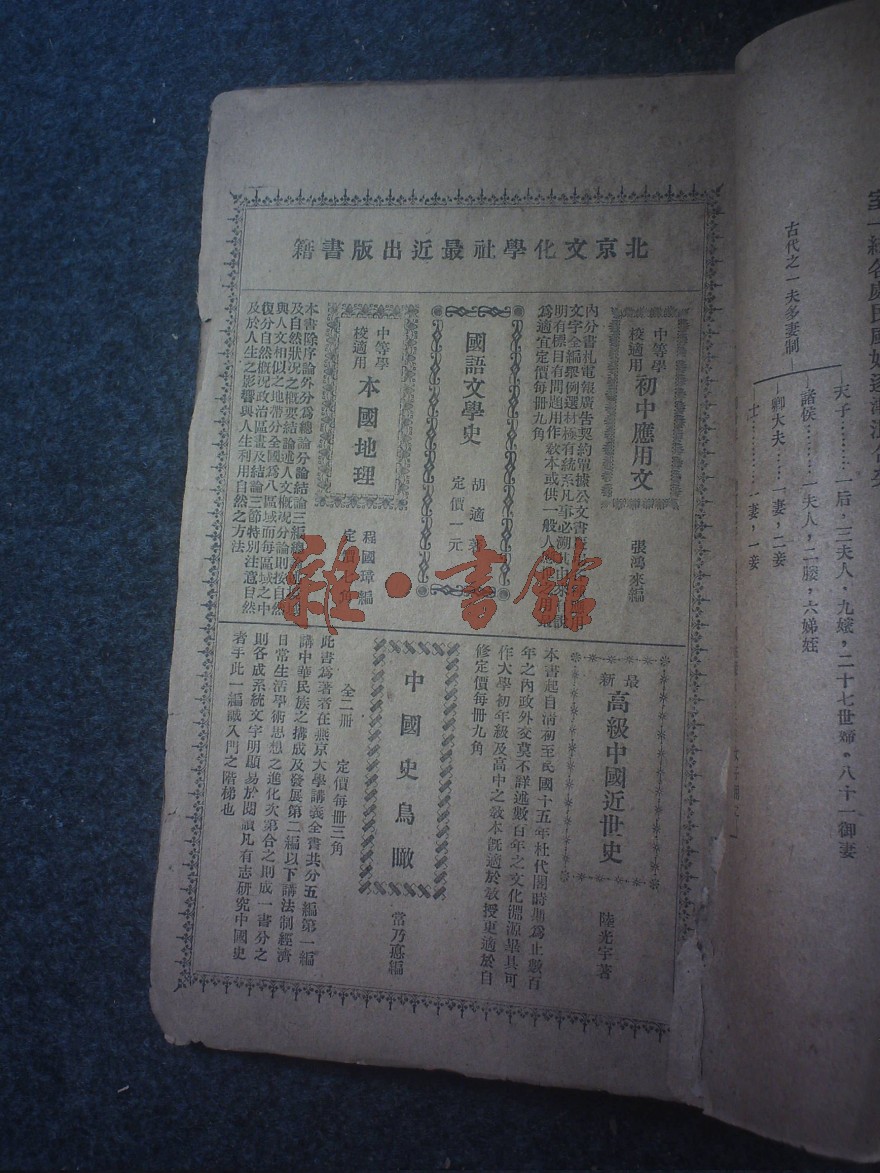 北京文化學社最近出版書籍
中等學校適用
初中應用文
張鴻來編
內分書札電報廣告契約單據公文書
文字全編舉例選材極有統系凡事必溯其由來
明有標目有問題用作教本或供一般人
為適宜定價每冊九角
國語文學史
胡適著
定價一元
中等學校適用
本國地理
程國璋編
定價七角
本書除序論外分為總論分論結論三編
及自然狀況之概要結論述人文概況分論則按自然
與人文相似之地帶分全國為八區域而每區域之中
復分自然概況政治區畫及結論三節特別注意自然
及於人生之影響與人生利用自然之方法
最新
高級中國近世史
陸光宇著
本書起自清初至民國十五年杜代閣時期為止數百
年之內政外交莫不詳述數百年之文化淵源畢具可
作大學初年級及高中之教本既適於教授更適於自
修定價每冊九角
中國史鳥瞰
常乃惪編
全二冊 定價每冊三角
此書為著者在燕京大學講義全書共分五編第一編
講中華民族之搆成及發展第二編以下講法制經濟
日常生活學術思想之進化次第合之則成一書分之
則各成系統文字明顯易於閱讀凡有志研究中國史
者手此一編誠入門之階梯也
古代之一夫多妻制
天子………一后，三夫人，九嬪，二十七世婦。八十一御妻
諸侯………一夫人，二媵，六娣姪
卿大夫……一妻，二妾
士…………一妻，一妾
雜·書館